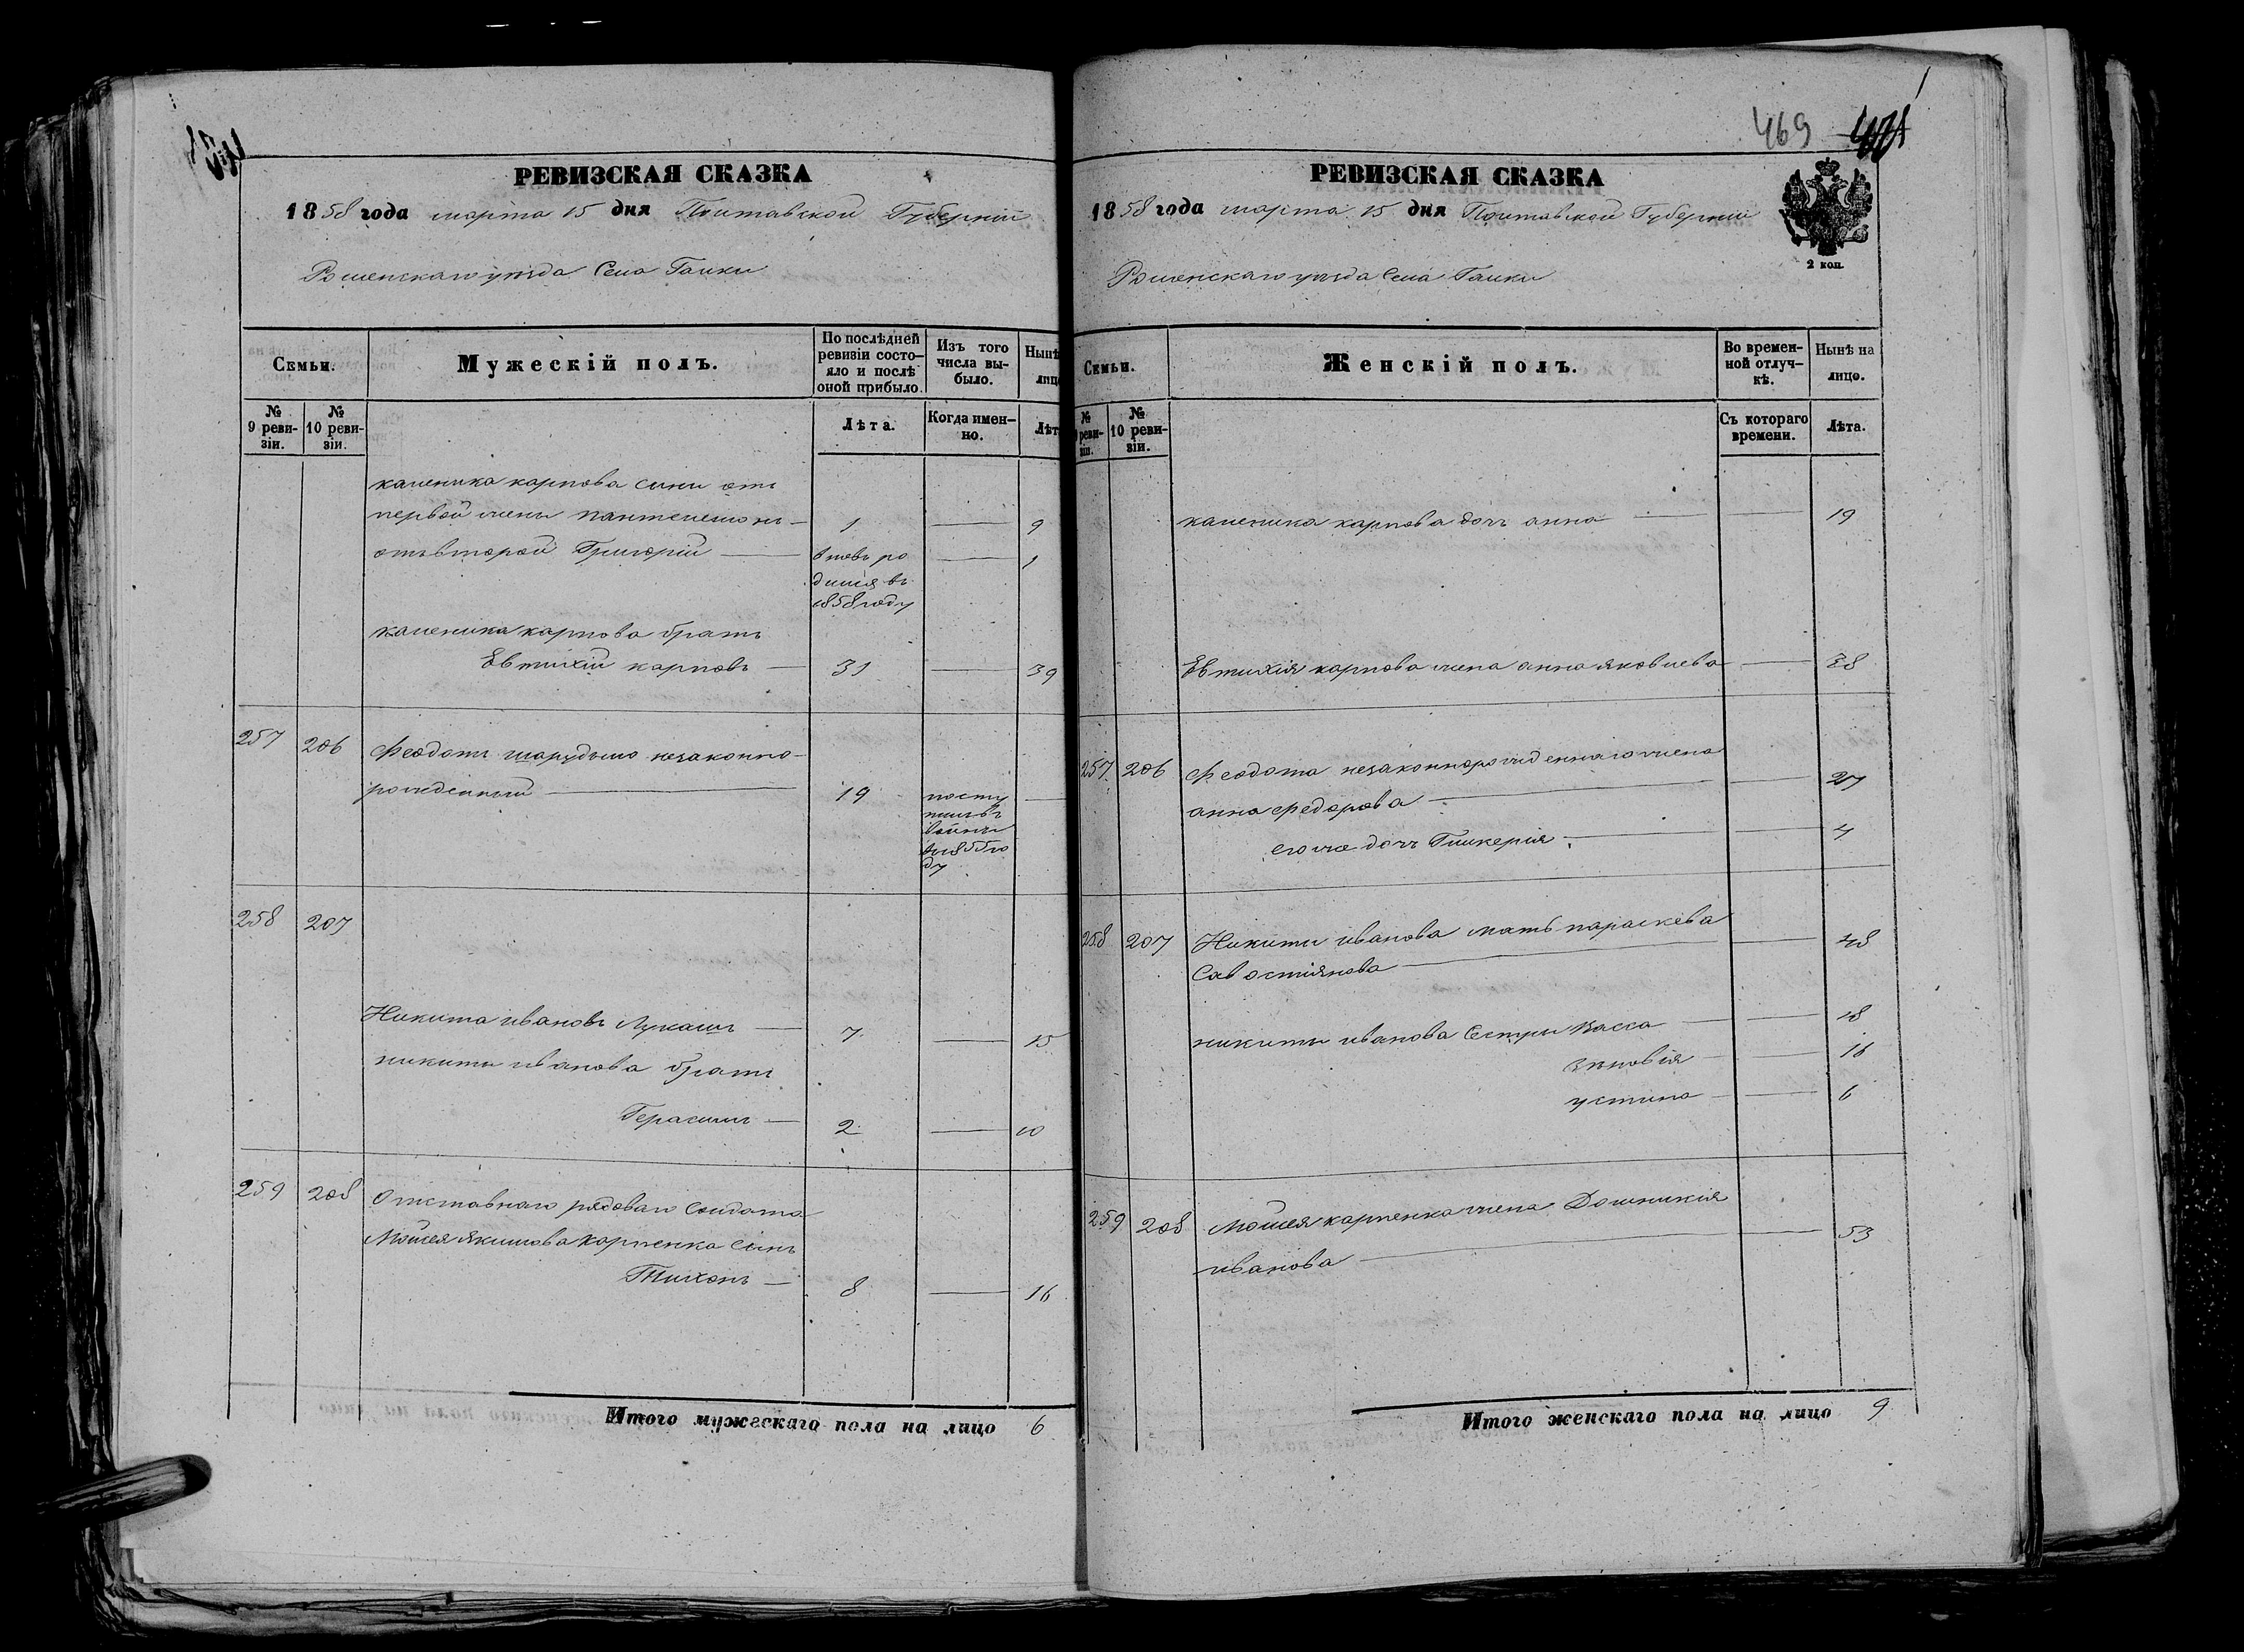 РЕВИЗСКАЯ СКАЗКА
1858 года марта 15 дня Полтавской Губернии
Роменскаго уѣзда Села Галки
Семьи.
Мужескій полъ.
По послѣдней ревизіи состо-
яло и послѣ
оной прибыло.
Изъ того
числа вы-
было.
Нынѣ
лицо
№
9 реви-
зіи.
№
10 реви-
зіи.
Лѣта.
Когда имен-
но.
Лѣта
каленика карпова сини отъ
первой жены пантелеимонъ 1 9
отъ второй Григорій вновь ро 1
дился въ
1858 году
каленика карпова братъ
Евтихій карповъ 31 39
257 206 Феодотъ шарудыло незаконно-
рожденный 19 посту
пилъ въ
воины
въ 1855 го
ду
258 207
Никита ивановъ Лукашъ 7 15
никиты иванова братъ
Герасимъ 2 10
259 208 Отставнаго рядоваго Солдата
Мойсея Якимова Карпенка Сынъ
Тихонъ 8 16
Итого мужескаго пола на лицо 6
469
РЕВИЗСКАЯ СКАЗКА
1858 года марта 15 дня Полтавской Губернии
2 коп.
Роменскаго уѣзда Села Галки
Семьи.
Женскій полъ.
Во времен-
ной отлуч-
кѣ.
Нынѣ на
лицо.
№
реви-
зіи.
№
10 реви-
зіи.
Съ котораго
времени.
Лѣта.
каленика карпова дочь анна 19
Евтихія карпова жена анна яковлева 38
257 206 Феодота незаконнорожденнаго жена
анна федорова 27
его же дочь Гликерія 4
258 207 Никиты иванова мать параскева
Савостіянова 48
никиты иванова Сестры Васса 18
зѣновія 16
устина 6
259 208 Мойсея карпенка жена Домникія
иванова 53
Итого женскаго пола на лицо 9